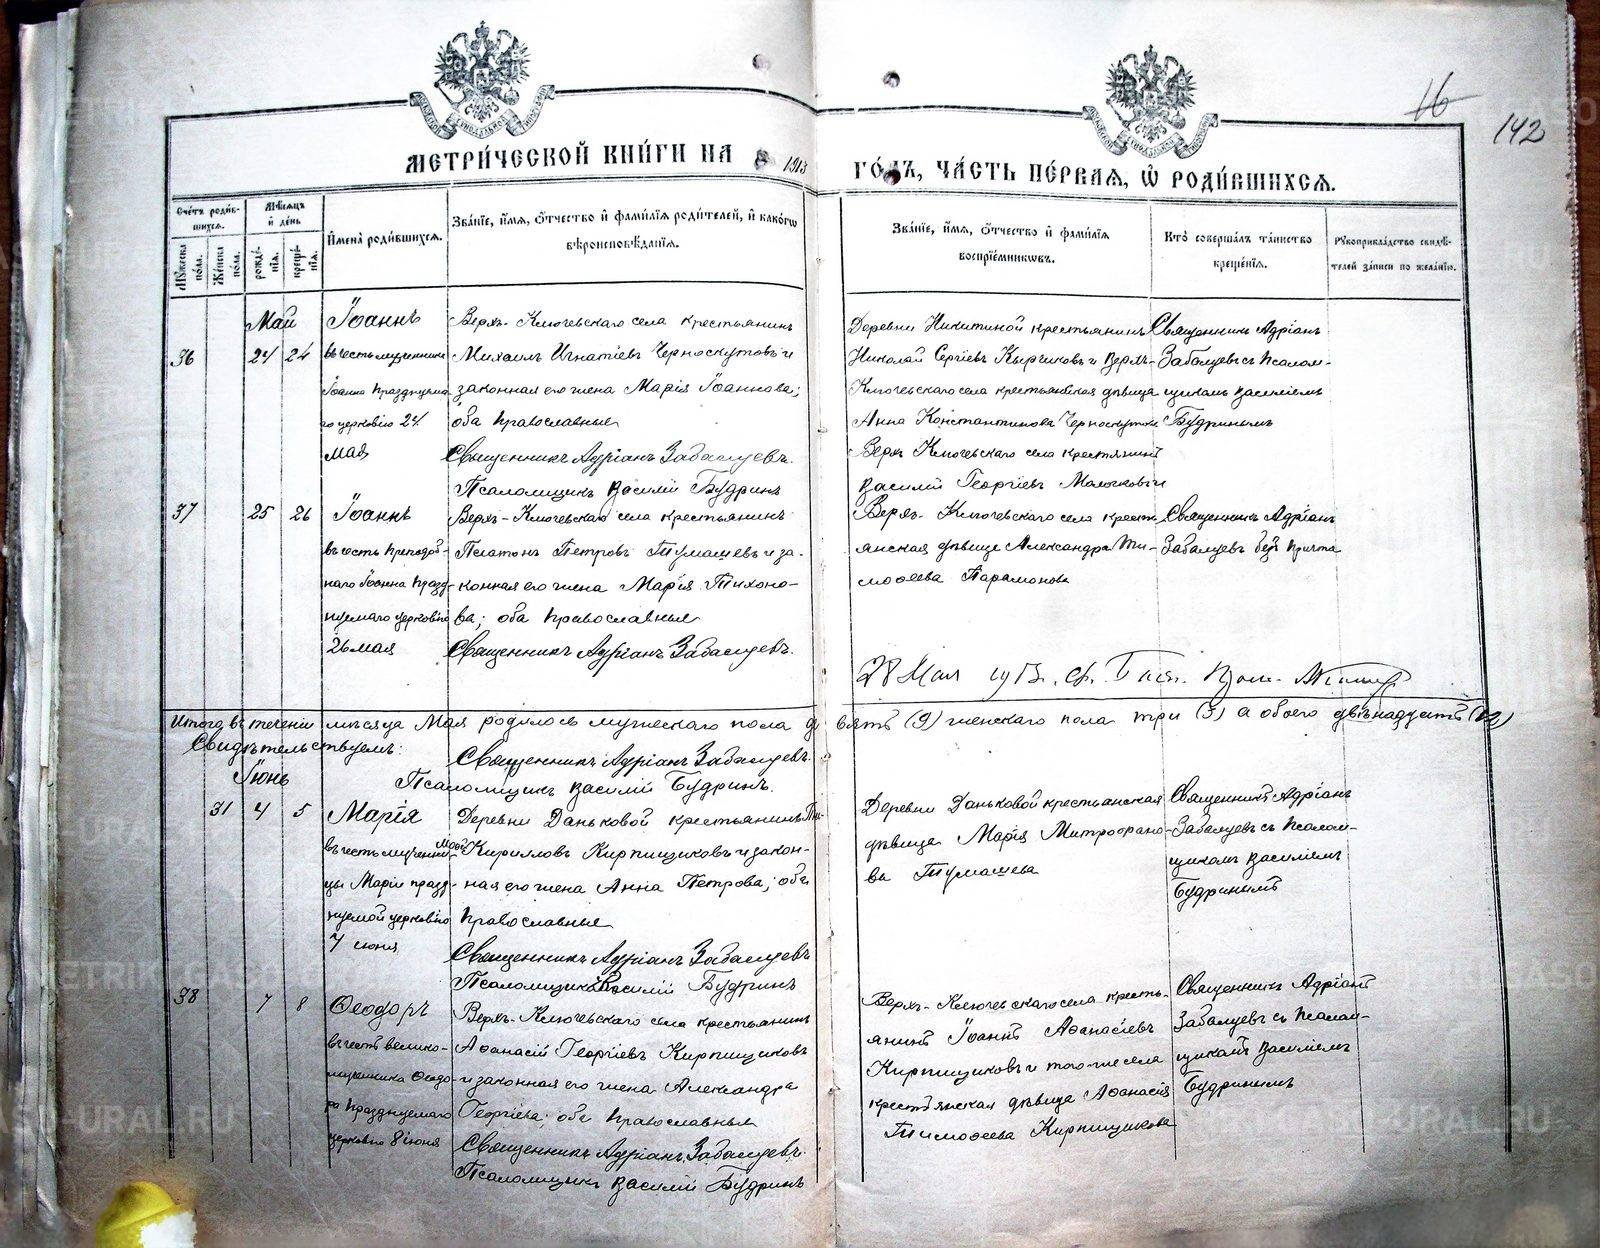 16
142
МЕТРИ́ЧЕСКОЙ КНИ́ГИ НА 1913 ГО́ДЪ, ЧА́СТЬ ПЕ́РВАЯ, Ѽ РОДИ́ВШИХСЯ.
Сче́тъ роди́в-
шихся.
Мѣ́сяцъ
и́ де́нь
Мужеска по́ла.
Же́нска по́ла.
рожде́-
нія.
креще́-
нія.
И́мена̀ роди́вшихся.
Зва́ніе, и́мя, ѻ́тчество и́ фами́лія роди́телей, и́ како́гѡ
вѣроисповѣ́данія.
Зва́ніе, и́мя, ѻ́тчество и́ фами́лія
воспріе́мниковъ.
Кто̀ соверша́лъ та́инство
креще́нія.
Рукоприкла́дство свидѣ́-
телей за́писи по жела́нію.
Май
36
24 24
Іоаннъ
въ честь мученника
Іоанна празднуема
го церковію 24
мая
Верхъ-Ключевскаго села крестьянинъ
Михаилъ Игнатіевъ Черноскутовъ и
законная его жена Марія Іоаннова;
оба православные
Священникъ Адріанъ Забалуевъ.
Псаломщикъ Василій Будринъ
Деревни Никитиной крестьянинъ
Николай Сергіевъ Кырчиковъ и Верхъ-
Ключевскаго села крестьянская дѣвица
Анна Константинова Черноскутова
Верхъ Ключевскаго села крестянинъ
Василій Георгіевъ Молочковъ и
Священникъ Адріанъ
Забалуевъ съ псалом-
щикомъ Василіемъ
Будринымъ
37
25 26
Іоаннъ
въ честь преподоб-
наго Іоанна празд-
нуемаго церковію
26 мая
Верхъ-Ключевскаго села крестьянинъ
Платонъ Петровъ Тумашевъ и за-
конная его жена Марія Тихоно-
ва; оба православные
Священникъ Адріанъ Забалуевъ.
Верхъ-Ключевскаго села кресть
янская дѣвица Александра Ти-
моѳеева Парамонова
Священникъ Адріанъ
Забалуевъ безъ причта
28 Мая 1913.
Итого въ теченіи мѣсяца Мая родилось мужескаго пола девять (9) женскаго пола три (3) а обоего двѣнадцать (12)
Свидѣтельствуемъ:
Священникъ Адріанъ Забалуевъ.
Псаломщикъ Василій Будринъ.
Іюнь
31
4 5
Марія
въ честь мученни-
цы Маріи празд-
нуемой церковію
7 іюня
Деревни Даньковой крестьянинъ Ти-
моѳ. Кирилловъ Кирпищиковъ и закон-
ная его жена Анна Петрова; оба
православные
Священникъ Адріанъ Забалуевъ
Псаломщикъ Василій Будринъ
Деревни Даньковой крестьянская
дѣвица Марія Митрофано-
ва Тумашева
Священникъ Адріанъ
Забалуевъ съ псалом-
щикомъ Василіемъ
Будринымъ
38
7 8
Ѳеодоръ
въ честь велико-
мученника Ѳеодо-
ра празднуемаго
церковію 8 іюня
Верхъ-Ключевскаго села крестьянинъ
Аѳанасій Георгіевъ Кирпищиковъ
и законная его жена Александра
Георгіева; оба православные
Священникъ Адріанъ Забалуевъ.
Псаломщикъ Василій Будринъ
Верхъ-Ключевскаго села кресть-
янинъ Іоаннъ Аѳанасіевъ
Кирпищиковъ и того-же села
крестьянская дѣвица Аѳанасія
Тимоѳеева Кирпищикова
Священникъ Адріанъ
Забалуевъ съ псалом-
щикомъ Василіемъ
Будринымъ